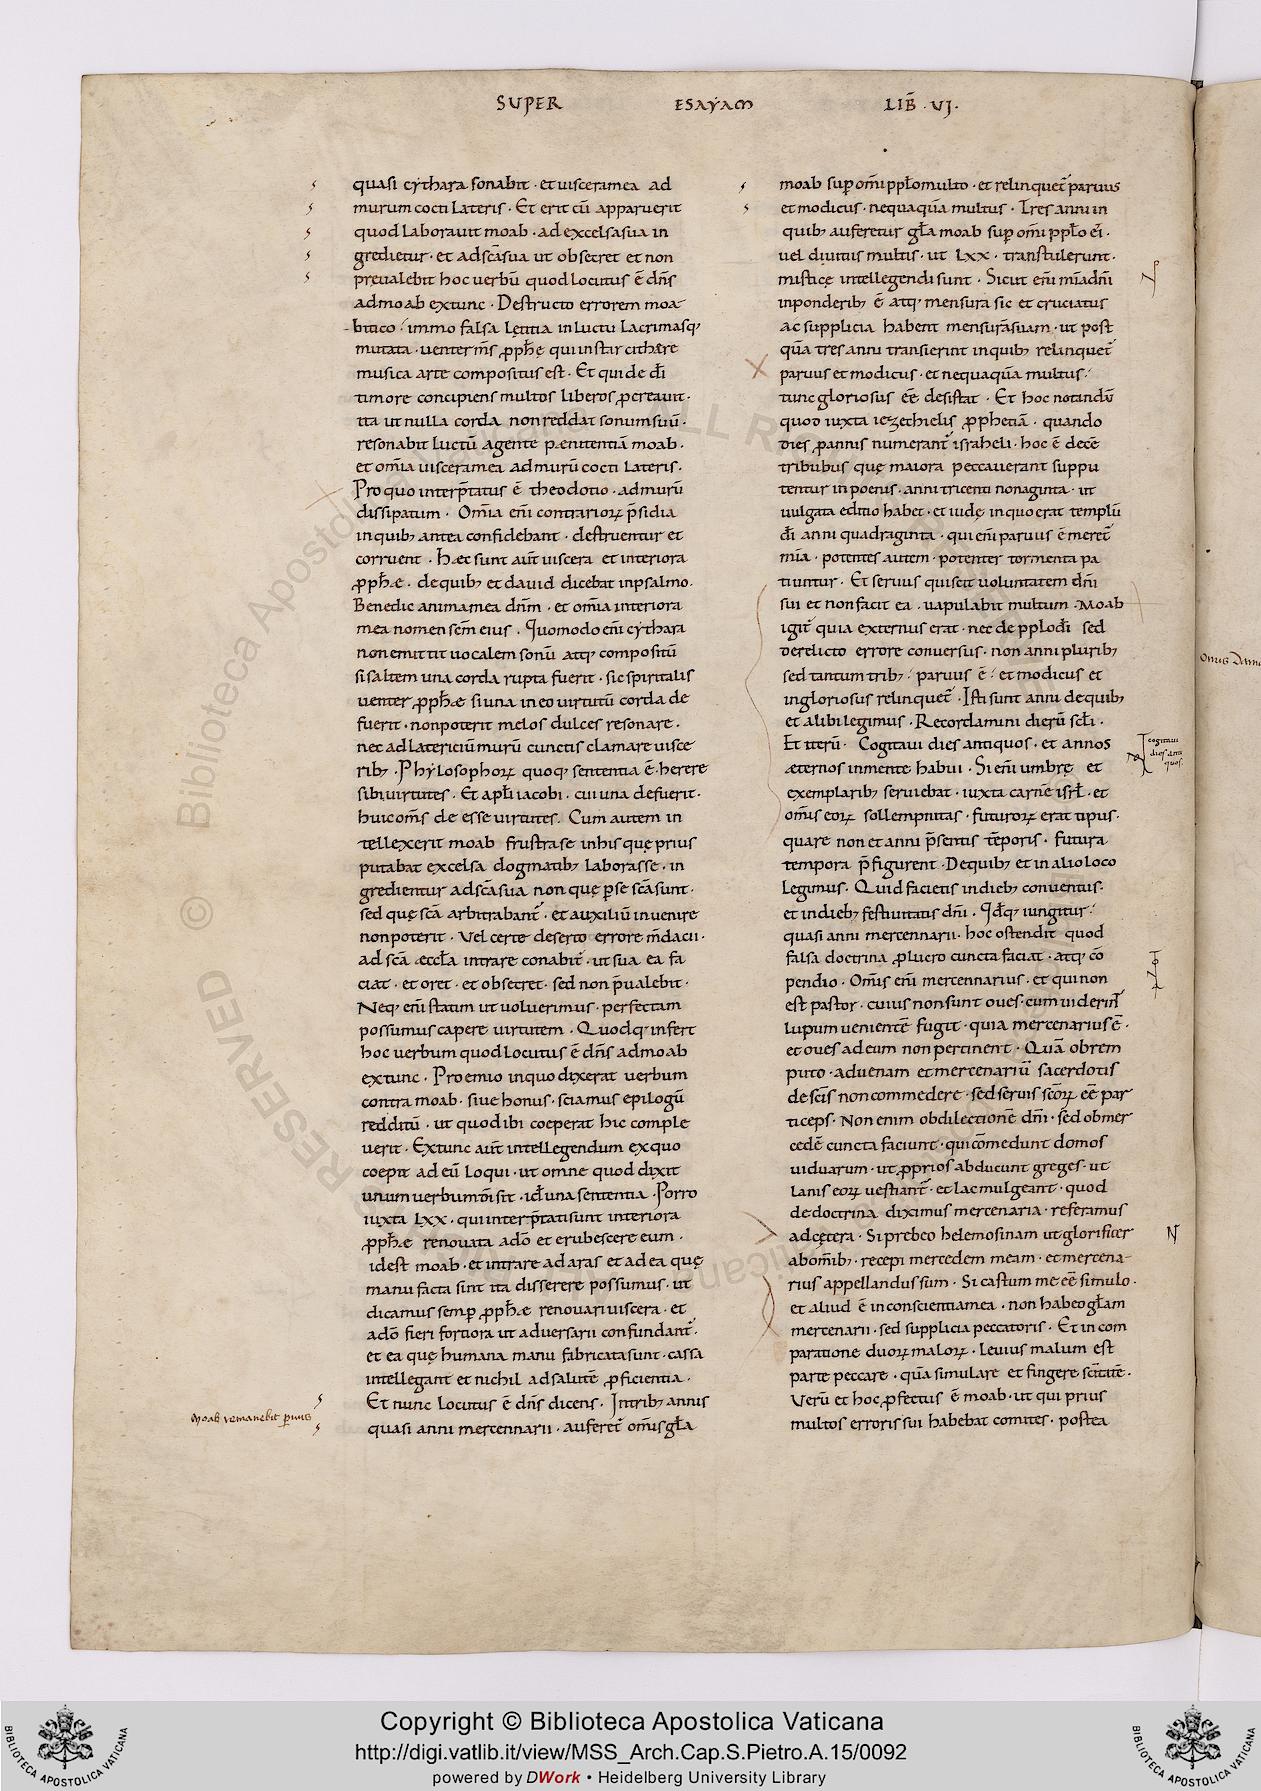 SUPER ESAYAM LIB̄ · VI ·
quasi cythara sonabit · et uiscera mea ad
murum cocti lateris · Et erit cū apparuerit
quod laborauit moab · ad excelsa sua in
gredietur · et ad sc̄a sua ut obsecret et non
preualebit hoc uerbū quod locutus ē dn̄s
ad moab extunc · Destructo errorem moa
bitico · immo falsa lętitia in luctu lacrimasq;
mutata · uenter m̄s ꝓph̄ę qui instar cithare
musica arte compositus est · Et qui de dī
timore concipiens multos liberos ꝓcreauit ·
ita ut nulla corda non reddat sonum suū ·
resonabit luctū agente pænitentiā moab ·
et om̄ia uiscera mea ad murū cocti lateris ·
Pro quo interp̄tatus ē theodotio · ad murū
dissipatum · Om̄ia em̄ contrarioꝝ p̄sidia
in quib; antea confidebant · destruentur et
corruent · Hæc sunt aūt uiscera et interiora
ꝓph̄æ · de quib; et dauid dicebat in psalmo ·
Benedic anima mea dn̄m · et om̄ia interiora
mea nomen sc̄m eius · Quomodo em̄ cythara
non emittit uocalem sonū atq; compositū
si saltem una corda rupta fuerit · sic spiritalis
uenter ꝓph̄æ si una in eo uirtutū corda de
fuerit · non poterit melos dulces resonare ·
nec ad latericiū murū cunctis clamare uisce
rib; · Phylosophoꝝ quoq; sententia ē · herere
sibi uirtutes · Et apl̄i iacobi · cui una defuerit ·
huic om̄s de esse uirtutes · Cum autem in
tellexerit moab frustra se in his quę prius
putabat excelsa dogmatib; laborasse · in
gredientur ad sc̄a sua non quę ꝑ se sc̄a sunt ·
sed quę sc̄a arbitrabant᷑ · et auxiliū inuenire
non poterit · Vel certe deserto errore m̄dacii ·
ad sc̄a æccl̄a intrare conabit᷑ · ut sua ea fa
ciat · et oret · et obsecret · sed non p̄ualebit ·
Neq; em̄ statim ut uoluerimus · perfectam
possumus capere uirtutem · Quodq; infert
hoc uerbum quod locutus ē dn̄s ad moab
extunc · Proemio in quo dixerat uerbum
contra moab · siue honus · sciamus epilogū
redditū · ut quod ibi coeperat hic comple
uerit · Extunc aūt intellegendum ex quo
coepit ad eū loqui · ut omne quod dixit
unum uerbum d̄i sit · id̄ una sententia · Porro
iuxta LXX · qui interp̄tati sunt interiora
ꝓph̄æ renouata adō et erubescere eum ·
id est moab · et intrare ad aras et ad ea quę
manu facta sint ita disserere possumus · ut
dicamus semꝑ ꝓph̄æ renouari uiscera · et
adō fieri fortiora ut aduersarii confundant᷑ ·
et ea quę humana manu fabricata sunt · cassa
intellegant et nichil ad salutē ꝓficientia ·
Et nunc locutus ē dn̄s dicens · In trib; annis
quasi anni mercennarii · auferet᷑ om̄is gl̄a
moab remanebit paruus
moab suꝑ om̄i ppl̄o multo · et relinquet᷑ paruus
et modicus · nequaquā multus · Tres anni in
quib; auferetur gl̄a moab suꝑ om̄i ppl̄o ei ·
uel diuitiis multis · ut LXX · transtulerunt ·
misticę intellegendi sunt · Sicut em̄ mīa dn̄i
in ponderib; ē atq; mensura sic et cruciatus
ac supplicia habent mensurā suam · ut post
quā tres anni transierint in quib; relinquet᷑
paruus et modicus · et nequaquā multus ·
tunc gloriosus eē desistat · Et hoc notandū
quod iuxta iezechielis ꝓphetiā · quando
dies ꝓ annis numerant᷑ israheli · hoc ē decē
tribubus quę maiora peccauerant suppu
tentur in poenis · anni tricenti nonaginta · ut
uulgata editio habet · et iudę in quo erat templū
dī anni quadraginta · qui em̄ paruus ē meret᷑
mīa · potentes autem · potenter tormenta pa
tiuntur · Et seruus qui scit uoluntatem dn̄i
sui et non facit ea · uapulabit multum · Moab
igit᷑ quia externus erat · nec de pplo dī sed
derelicto errore conuersus · non anni plurib;
sed tantum trib; · paruus ē · et modicus et
ingloriosus relinquet᷑ · Isti sunt anni de quib;
et alibi legimus · Recordamini dierū sc̄li ·
Et iterū · Cogitaui dies antiquos · et annos
æternos in mente habui · Si em̄ umbrę et
exemplarib; seruiebat · iuxta carnē isrl̄ · et
om̄is eoꝝ sollempnitas · futuroꝝ erat tipus ·
quare non et anni p̄sentis tēporis · futura
tempora p̄figurent · De quib; et in alio loco
legimus · Quid facietis in dieb; conuentus ·
et in dieb; festiuitatis dn̄i · Id̄q; iungitur ·
quasi anni mercennarii · hoc ostendit quod
falsa doctrina ꝓ lucro cuncta faciat · atq; cō
pendio · Om̄is em̄ mercennarius · et qui non
est pastor · cuius non sunt oues · cum uiderint᷑
lupum uenientē fugit · quia mercenarius ē ·
et oues ad eum non pertinent · Quā obrem
puto · aduenam et mercenariū sacerdotis
de sc̄is non commedere · sed seruis sc̄oꝝ eē par
ticeps · Non enim ob dilectionē dn̄i · sed ob mer
cedē cuncta faciunt · qui cōmedunt domos
uiduarum · ut ꝓprios abducunt greges · ut
lanis eoꝝ uestiant᷑ · et lac mulgeant · quod
de doctrina diximus mercenaria · referamus
ad cętera · Si prebeo helemosinam ut glorificer
ab om̄ib; · recepi mercedem meam · et mercena
rius appellandus sum · Si castum me eē simulo ·
et aliud ē in conscientia mea · non habeo gl̄am
mercenarii · sed supplicia peccatoris · Et in com
paratione duoꝝ maloꝝ · leuius malum est
parte peccare · quā simulare et fingere sc̄itatē ·
Verū et hoc ꝓfectus ē moab · ut qui prius
multos erroris sui habebat comites · postea
cogitaui
dies anti
quos
onus dam
© Biblioteca Apostolica Vaticana ALL RIGHTS RESERVED
Copyright © Biblioteca Apostolica Vaticana
http://digi.vatlib.it/view/MSS_Arch.Cap.S.Pietro.A.15/0092
powered by DWork • Heidelberg University Library
BIBLIOTECA APOSTOLICA VATICANA
BIBLIOTECA APOSTOLICA VATICANA